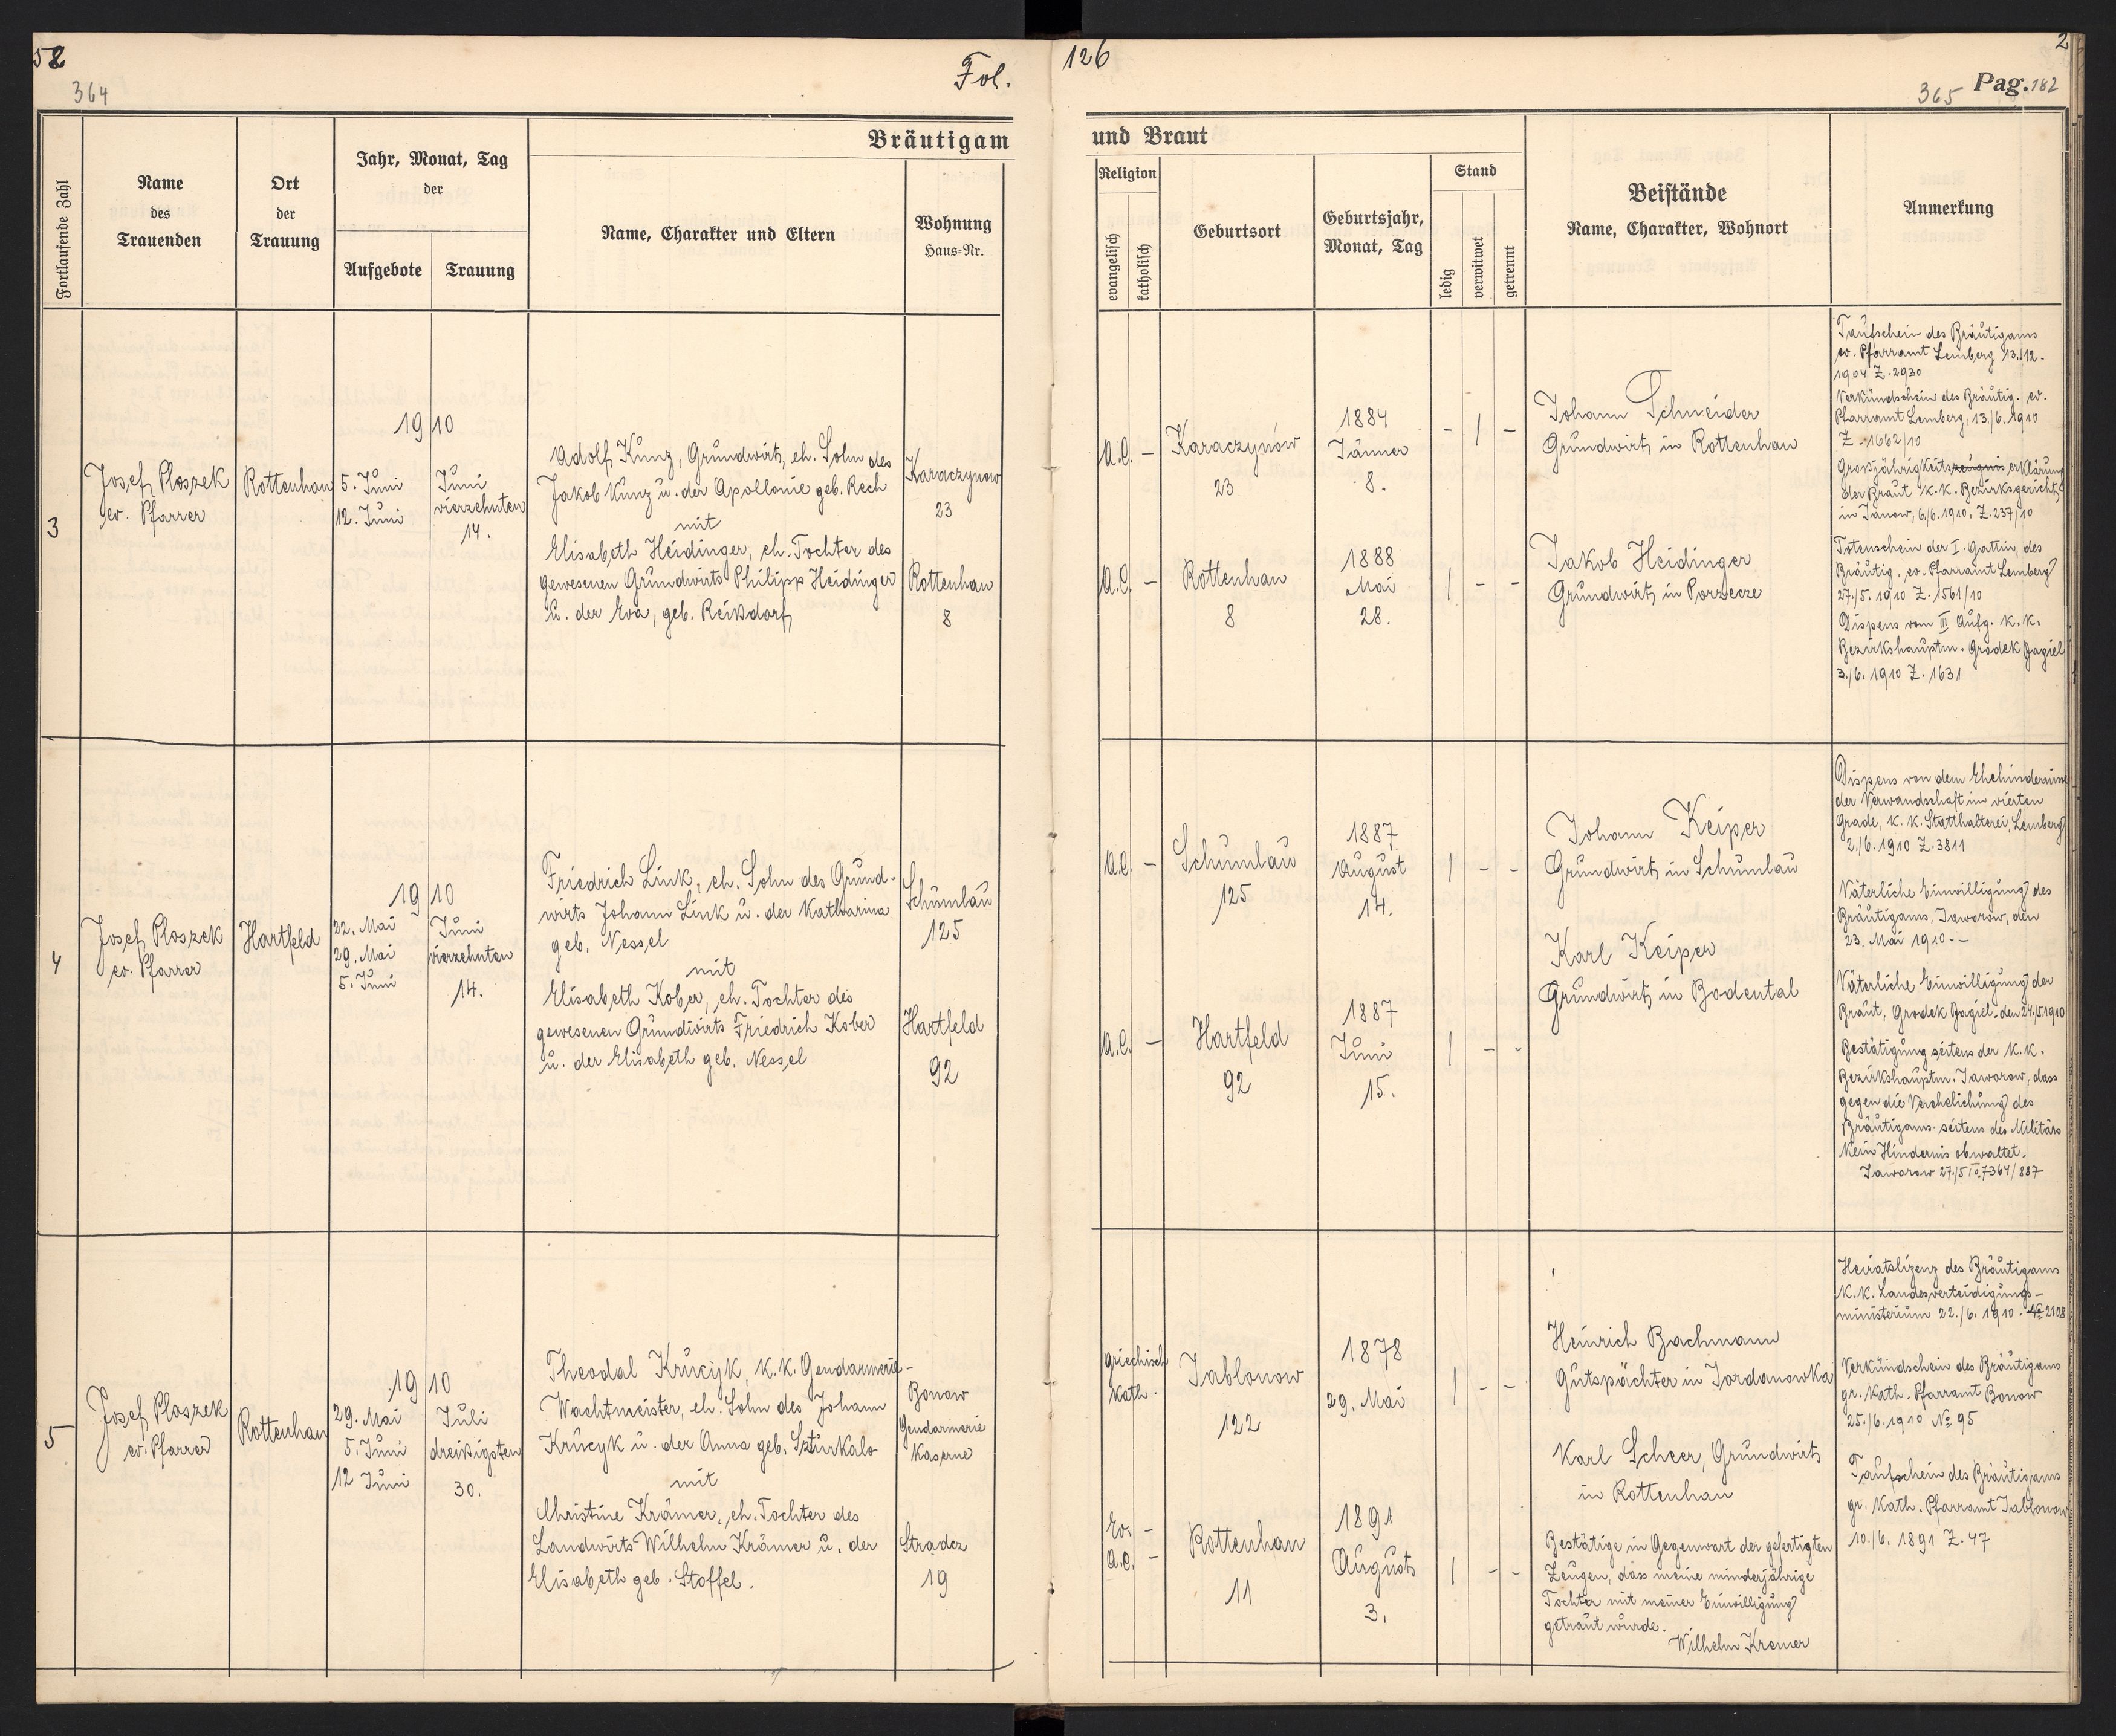 52
364
Fol.
126
2
365 Pag. 182
Bräutigam
und Braut
Fortlaufende Zahl
Name
des
Trauenden
Ort
der
Trauung
Jahr, Monat, Tag
der
Aufgebote
Trauung
Name, Charakter und Eltern
Wohnung
Haus-Nr.
Religion
evangelisch
katholisch
Geburtsort
Geburtsjahr,
Monat, Tag
Stand
ledig
verwitwet
getrennt
Beistände
Name, Charakter, Wohnort
Anmerkung
3
Josef Ploszek
ev. Pfarrer
Rottenhan
1910
5. Juni
12. Juni
Juni
vierzehnten
14.
Adolf Kunz, Grundwirt, eh. Sohn des
Jakob Kunz u. der Apollonie geb. Rech
mit
Elisabeth Heidinger, eh. Tochter des
gewesenen Grundwirts Philipp Heidinger
u. der Eva, geb. Reißdorf
Karaczynow
23
Rottenhan
8
A.C. -
Karaczynów
23
1884
Jänner
8.
- 1 -
A.C. -
Rottenhan
8
1888
Mai
28.
1 - -
Johann Schneider
Grundwirt in Rottenhan
Jakob Heidinger
Grundwirt in Porzecze
Taufschein des Bräutigams
ev. Pfarramt Lemberg 13./12.
1904 Z. 2930
Verkündschein des Bräutig. ev.
Pfarramt Lemberg, 13./6. 1910
Z. 1662/10
Grossjährigkeitszeugnis erklärung
der Braut K.K. Bezirksgericht
in Janow, 6./6. 1910. Z. 237/10
Totenschein der I. Gattin, des
Bräutig. ev. Pfarramt Lemberg
27./5. 1910 Z. 1561/10
Dispens vom III Aufg. K.K.
Bezirkshauptm. Grodek Jagiel
3./6. 1910 Z. 1631
4
Josef Ploszek
ev. Pfarrer
Hartfeld
1910
22. Mai
29. Mai
5. Juni
Juni
vierzehnten
14.
Friedrich Link, eh. Sohn des Grund-
wirts Johann Link u. der Katharina
geb. Nessel
mit
Elisabeth Kober, eh. Tochter des
gewesenen Grundwirts Friedrich Kober
u. der Elisabeth geb. Nessel
Schumlau
125
Hartfeld
92
A.C. -
Schumlau
125
1887
August
14.
1 - -
A.C. -
Hartfeld
92
1887
Juni
15.
1 - -
Johann Keiper
Grundwirt in Schumlau
Karl Keiper
Grundwirt in Bodental
Dispens von dem Ehehindernisse
der Verwandschaft im vierten
Grade, K.K. Statthalterei, Lemberg
2./6. 1910 Z. 3811
Väterliche Einwilligung des
Bräutigams, Jaworow, den
23. Mai 1910. -
Väterliche Einwilligung der
Braut, Grodek Jagiel. den 24./5. 1910
Bestätigung seitens der K.K.
Bezirkshauptm. Jaworow, dass
gegen die Verehelichung des
Bräutigams seitens des Militärs
kein Hindernis obwaltet.
Jaworow 27./5 7364/887
5
Josef Ploszek
ev. Pfarrer
Rottenhan
1910
29. Mai
5. Juni
12 Juni
Juli
dreißigsten
30.
Theodal Krucyk, K.K. Gendarmerie-
Wachtmeister, eh. Sohn des Johann
Krucyk u. der Anna geb. Szturkalo
mit
Christine Krämer, eh. Tochter des
Landwirts Wilhelm Krämer u. der
Elisabeth geb. Stoffel.
Bonow
Gendarmerie
Kaserne
Stradcz
19
griechisch
kath.
Jablonow
122
1878
29. Mai
1 - -
Ev. -
A.C. -
Rottenhan
11
1891
August
3.
1 - -
Heinrich Bachmann
Gutspächter in Jordanowka
Karl Scheer, Grundwirt
in Rottenhan
Bestätige in Gegenwart der gefertigten
Zeugen, dass meine minderjährige
Tochter mit meiner Einwilligung
getraut wurde.
Wilhelm Kremer
Heiratslizenz des Bräutigams
K.K. Landesverteidigungs-
ministerium 22./6. 1910. № 2128
Verkündschein des Bräutigams
gr. Kath. Pfarramt Bonow
25./6. 1910 № 95
Taufschein des Bräutigams
gr. Kath. Pfarramt Jablonow
10./6. 1891 Z. 47